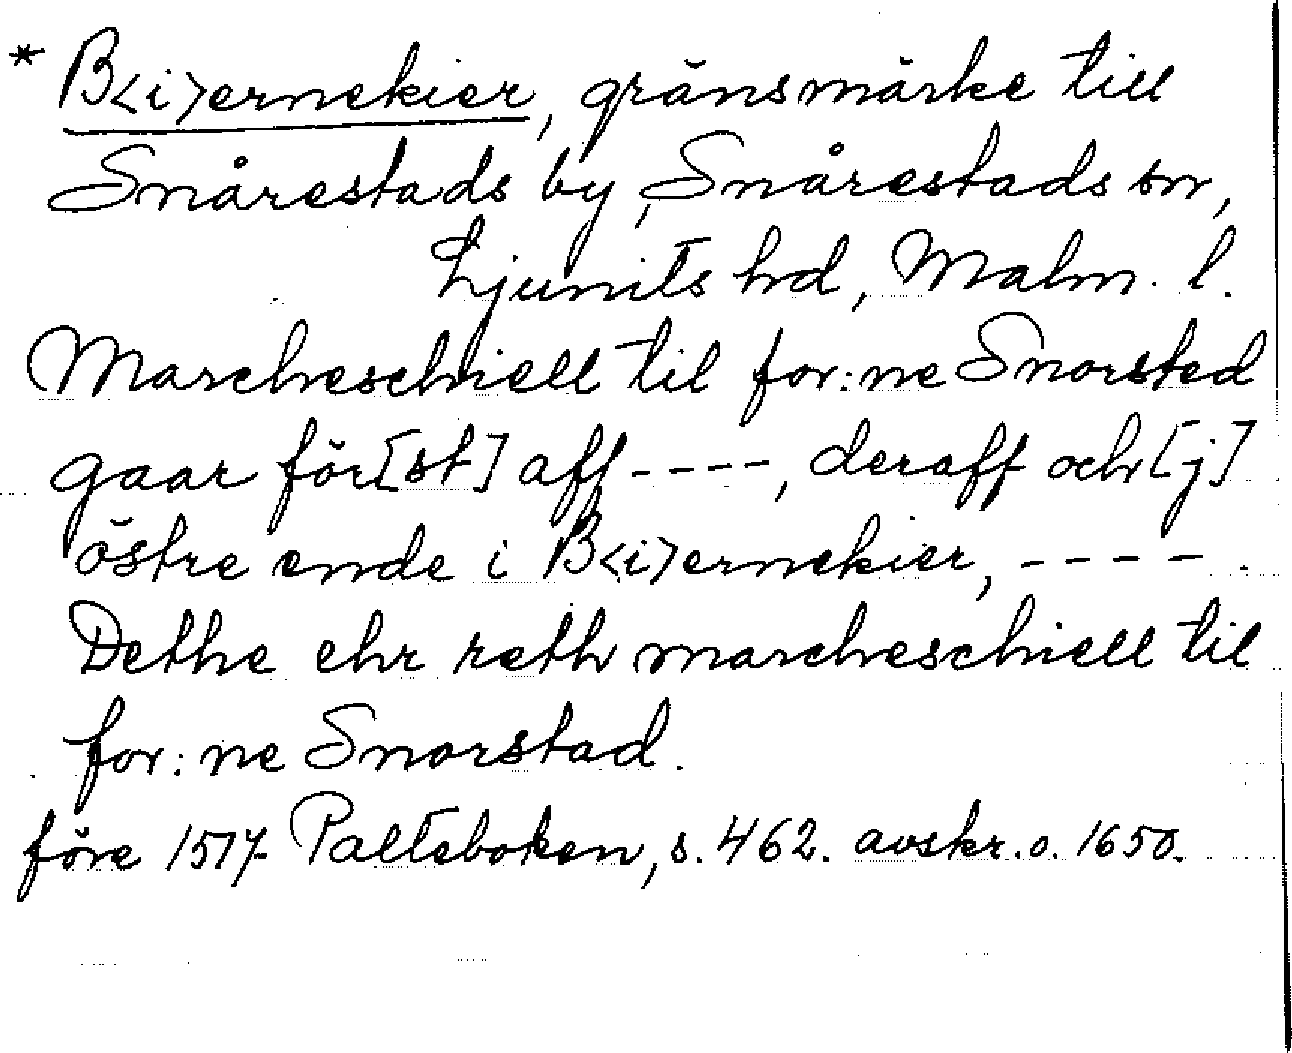 * B<i>ernekier, gränsmärke till
Snårestads by, Snårestads sn,
Ljunits hd, Malm. l.
Marcheschiell til for:ne Snorsted
gaar för[st] aff ----, deraff och [j]
östre ende i B<i>ernekier, ---- .
Dethe ehr reth marcheschiell til
for:ne Snorstad.
före 1517 Palteboken, s. 462. avskr. o. 1650.